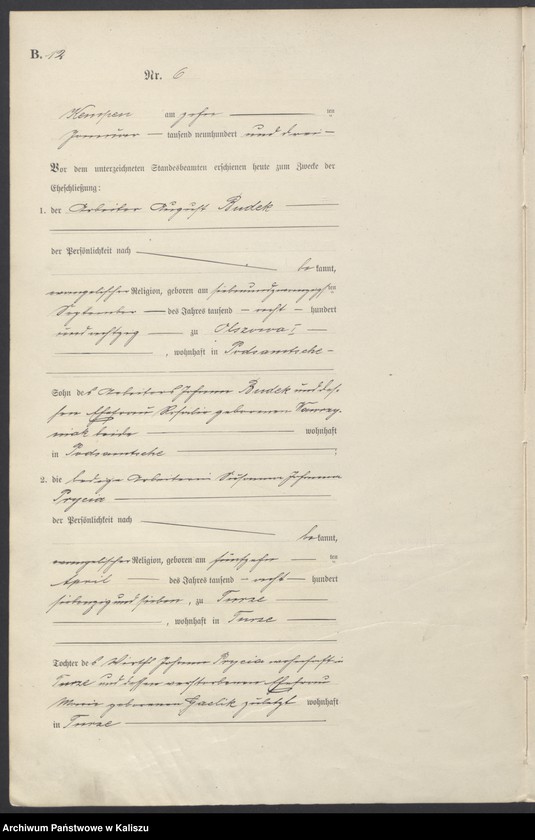 B. 12
Nr. 6
Kempen am zehn ten
Januar tausend neunhundert und drei
Vor dem unterzeichneten Standesbeamten erschienen heute zum Zwecke der
Eheschließung:
1. der Arbeiter August Budek
der Persönlichkeit nach
be kannt,
evangelischer Religion, geboren am siebenundzwanzigsten
September des Jahres tausend acht hundert
und achtzig zu Olszowa I
, wohnhaft in Podsamtsche
Sohn des Arbeiters Johann Budek und des-
sen Ehefrau Rosalie geborenen
beide wohnhaft
in Podsamtsche
2. die ledige Arbeiterin Susanna Johanna
Prycia
der Persönlichkeit nach
be kannt,
evangelischer Religion, geboren am fünfzehn ten
April des Jahres tausend acht hundert
siebenzig und sieben, zu Turze
, wohnhaft in Turze
Tochter des Wirths Johann Prycia wohnhaft in
Turze und dessen verstorbenen Ehefrau
Maria geborenen Gaelik zuletzt wohnhaft
in Turze
Archiwum Państwowe w Kaliszu